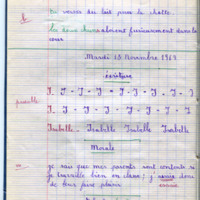 tu verses du lait pour le chatte
les deux chiens aboient furieusement dans la
cour
Mardi 13 Novembre 1969
écriture
I - I - I - I - I - I - I - I
I - I - I - I - I - I - I - I
Isabelle Isabelle Isabelle Isabelle
Morale
je sais que mes parents sont contents si
je travaille bien en classe ; j'y donc
de leur faire plaisir